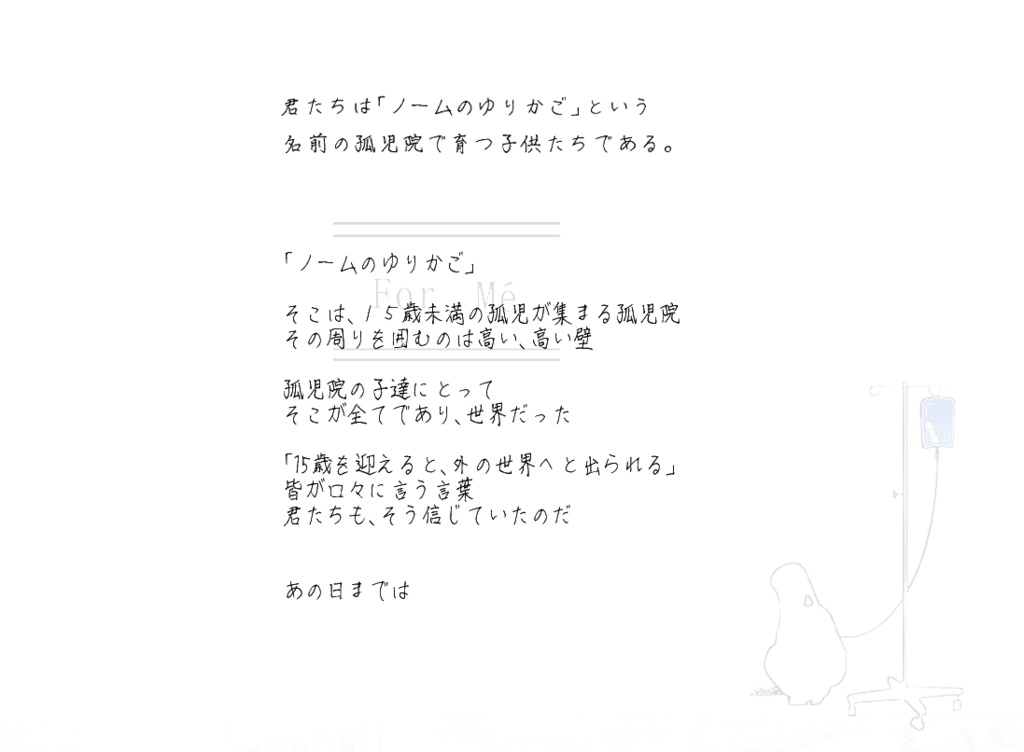 君たちは「ノームのゆりかご」という
名前の孤児院で育つ子供たちである。
「ノームのゆりかご」
For Mé
そこは、15歳未満の孤児が集まる孤児院
その周りを囲むのは高い、高い壁
孤児院の子達にとって
そこが全てであり、世界だった
「15歳を迎えると、外の世界へと出られる」
皆が口々に言う言葉
君たちも、そう信じていたのだ
あの日までは